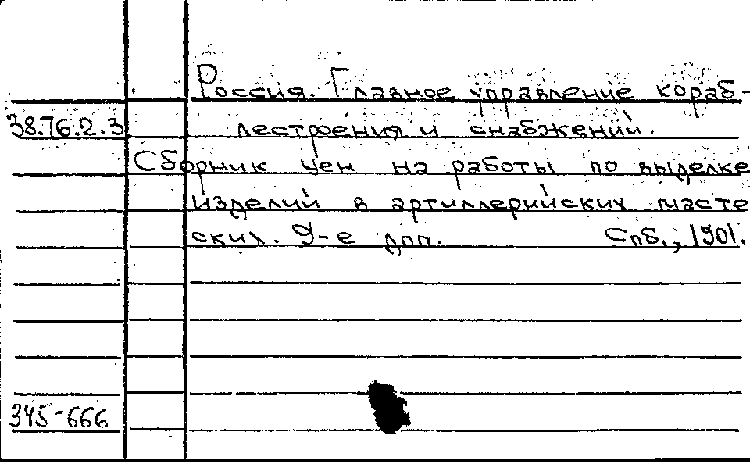 Россия. Главное управление кораб-
38.76.2.3 лестроения и снабжений.
Сборник цен на работы по выделке
изделий в артиллерийских масте
ских. 9-е доп. Спб., 1901.
345-666